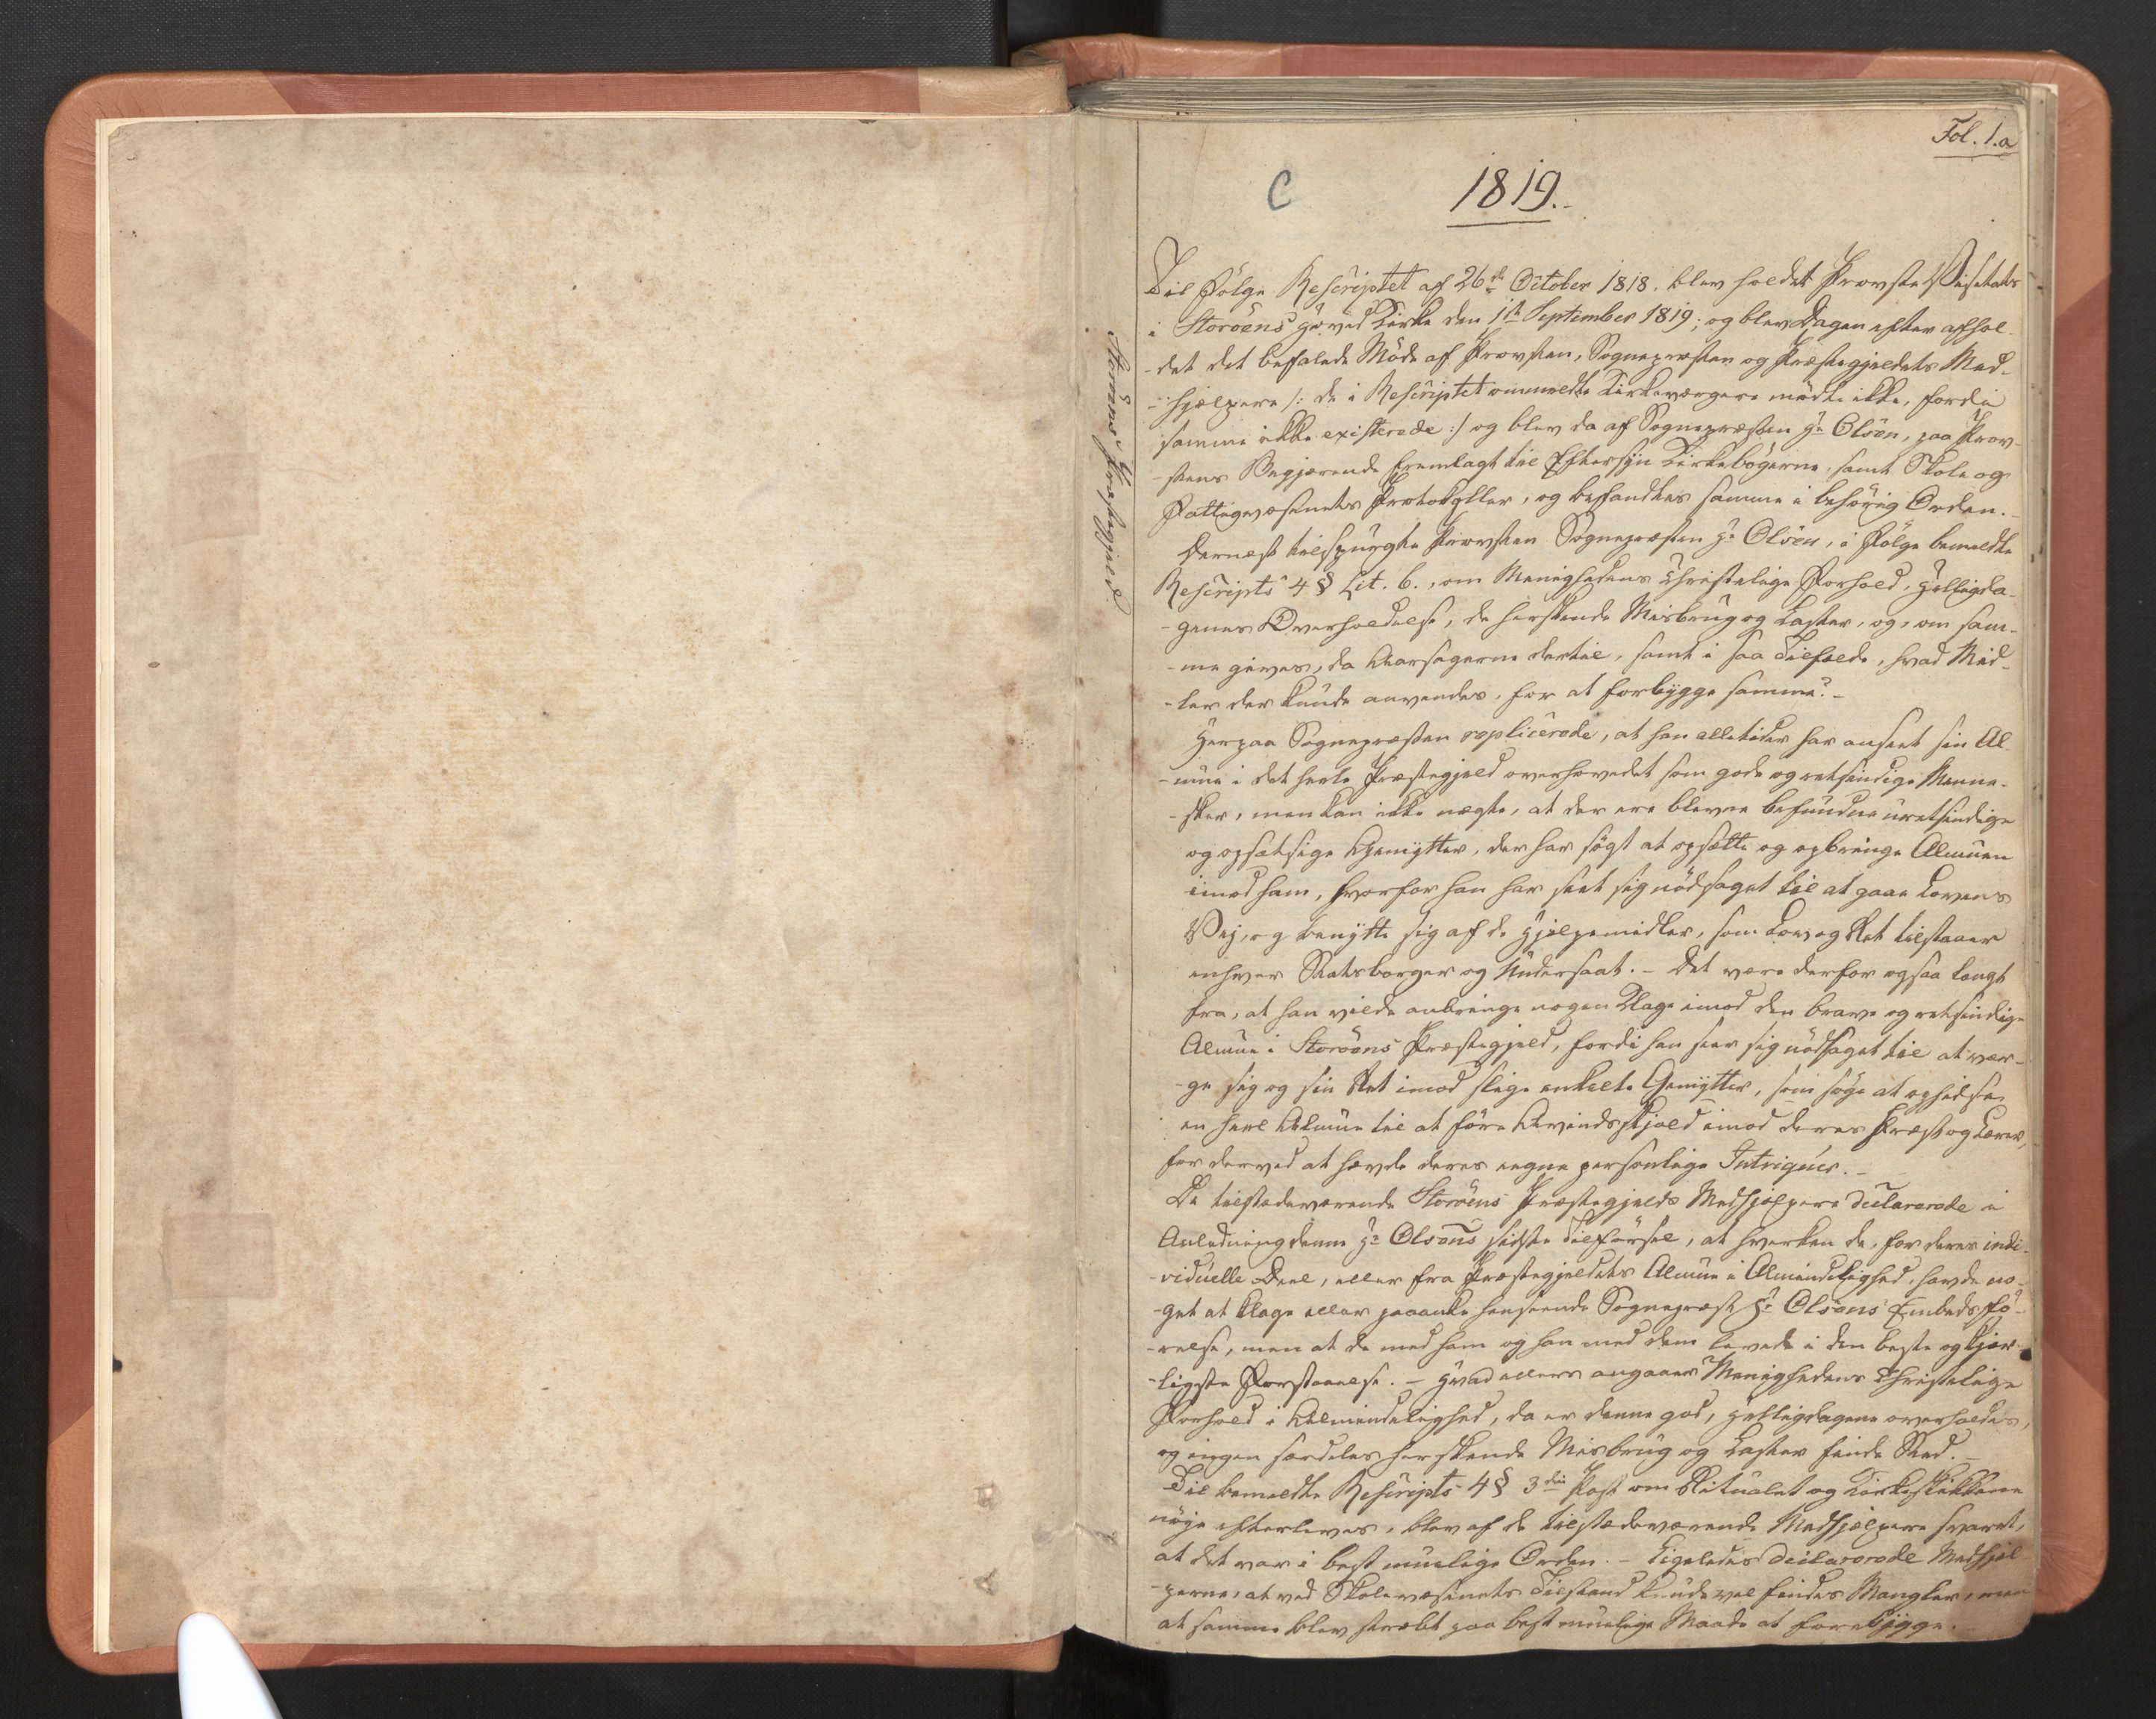 Fol. 1.a
C
1819.
Storöens Præstegjeld
Til Følge Rescriptet af 26de October 1818. blev holdet Provste Visitats
i Storöens Hoved Kirke den 1ste September 1819; og blev Dagen efter afhol-
-det det befalede Möde af Provsten, Sognepræsten og Præstegjeldets Med-
-hjælpere /: de i Rescriptet ommeldte Kirkeværgere mödte ikke, fordi
samme ikke existerede :/ og blev da af Sognepræsten Hr Olsen, paa Prov-
-stens Begjærende fremlagt til Eftersÿn Kirkebögerne, samt Skole og
Fattigvæsenets Protokoller, og befandtes samme i behörig Orden.
Dernæst tilspurgte Provsten Sognepræsten Hr Olsen, i Fölge bemeldte
Rescripts 4 § Lit. b., om Menighedens Christelige Forhold, Helligda-
-genes Overholdelse, de herskende Misbrug og Laster, og, om sam-
-me gives, da Aarsagerne dertil, samt i saa Tilfælde, hvad Mid-
-ler der kunde anvendes, for at forbÿgge samme? -
Herpaa Sognepræsten replicerede, at han alletider har anseet sin Al-
-mue i det heele Præstegjeld overhovedet som gode og retsindige Menne-
-sker, men kan ikke nægte, at der ere blevne befundne uretsindige
og opsætsige Gemÿtter, der har sögt at opsætte og opbringe Almuen
imod ham, hvorfor han har seet sig nödsaget til at gaae Lovens
Vej, og benÿtte sig af de Hjelpemidler, som Lov og Ret tilstaaer
enhver Statsborger og Undersaat. - Det være derfor ogsaa langt
fra, at han vilde anbringe nogen Klage imod den brave og retsindige
Almue i Storöens Præstegjeld, fordi han seer sig nödsaget til at vær-
-ge sig og sin Ret imod slige enkelte Gemÿtter, som söge at ophidse
en heel Almue til at före Avindskjold imod deres Præst og Lærer,
for derved at hævde deres eegne personlige Intriguer. -
De tilstedeværende Storöens Præstegjelds Medhjelpere declarerede i
Anledning denne Hr Olsens sidste Tilförsel, at hverken de, for deres indi-
-viduelle Deel, eller fra Præstegjeldets Almue i Almindelighed, havde no-
-get at klage eller paaanke henseende Sognepræst Hr Olsens Embedsfö-
-relse, men at de med ham og han med dem levede i den beste og kjær-
-ligste Forstaaelse. - Hvad ellers angaaer Menighedens Christelige
Forhold i Almindelighed, da er denne god, Helligdagene overholdes,
og ingen særdeles herskende Misbrug og Laster finde Sted. -
Til bemeldte Rescripts 4 § 3die Post om Ritualet og Kirkeskikkene
nöje efterleves, blev af de tilstedeværende Medhjelpere svaret,
at det var i best muelige Orden. - Ligeledes declarerede Medhjel-
-perne, at ved Skolevæsenets Tilstand kunde vel findes Mangler, men
at samme blev stræbt paa best muelige Maade at forebÿgge. -